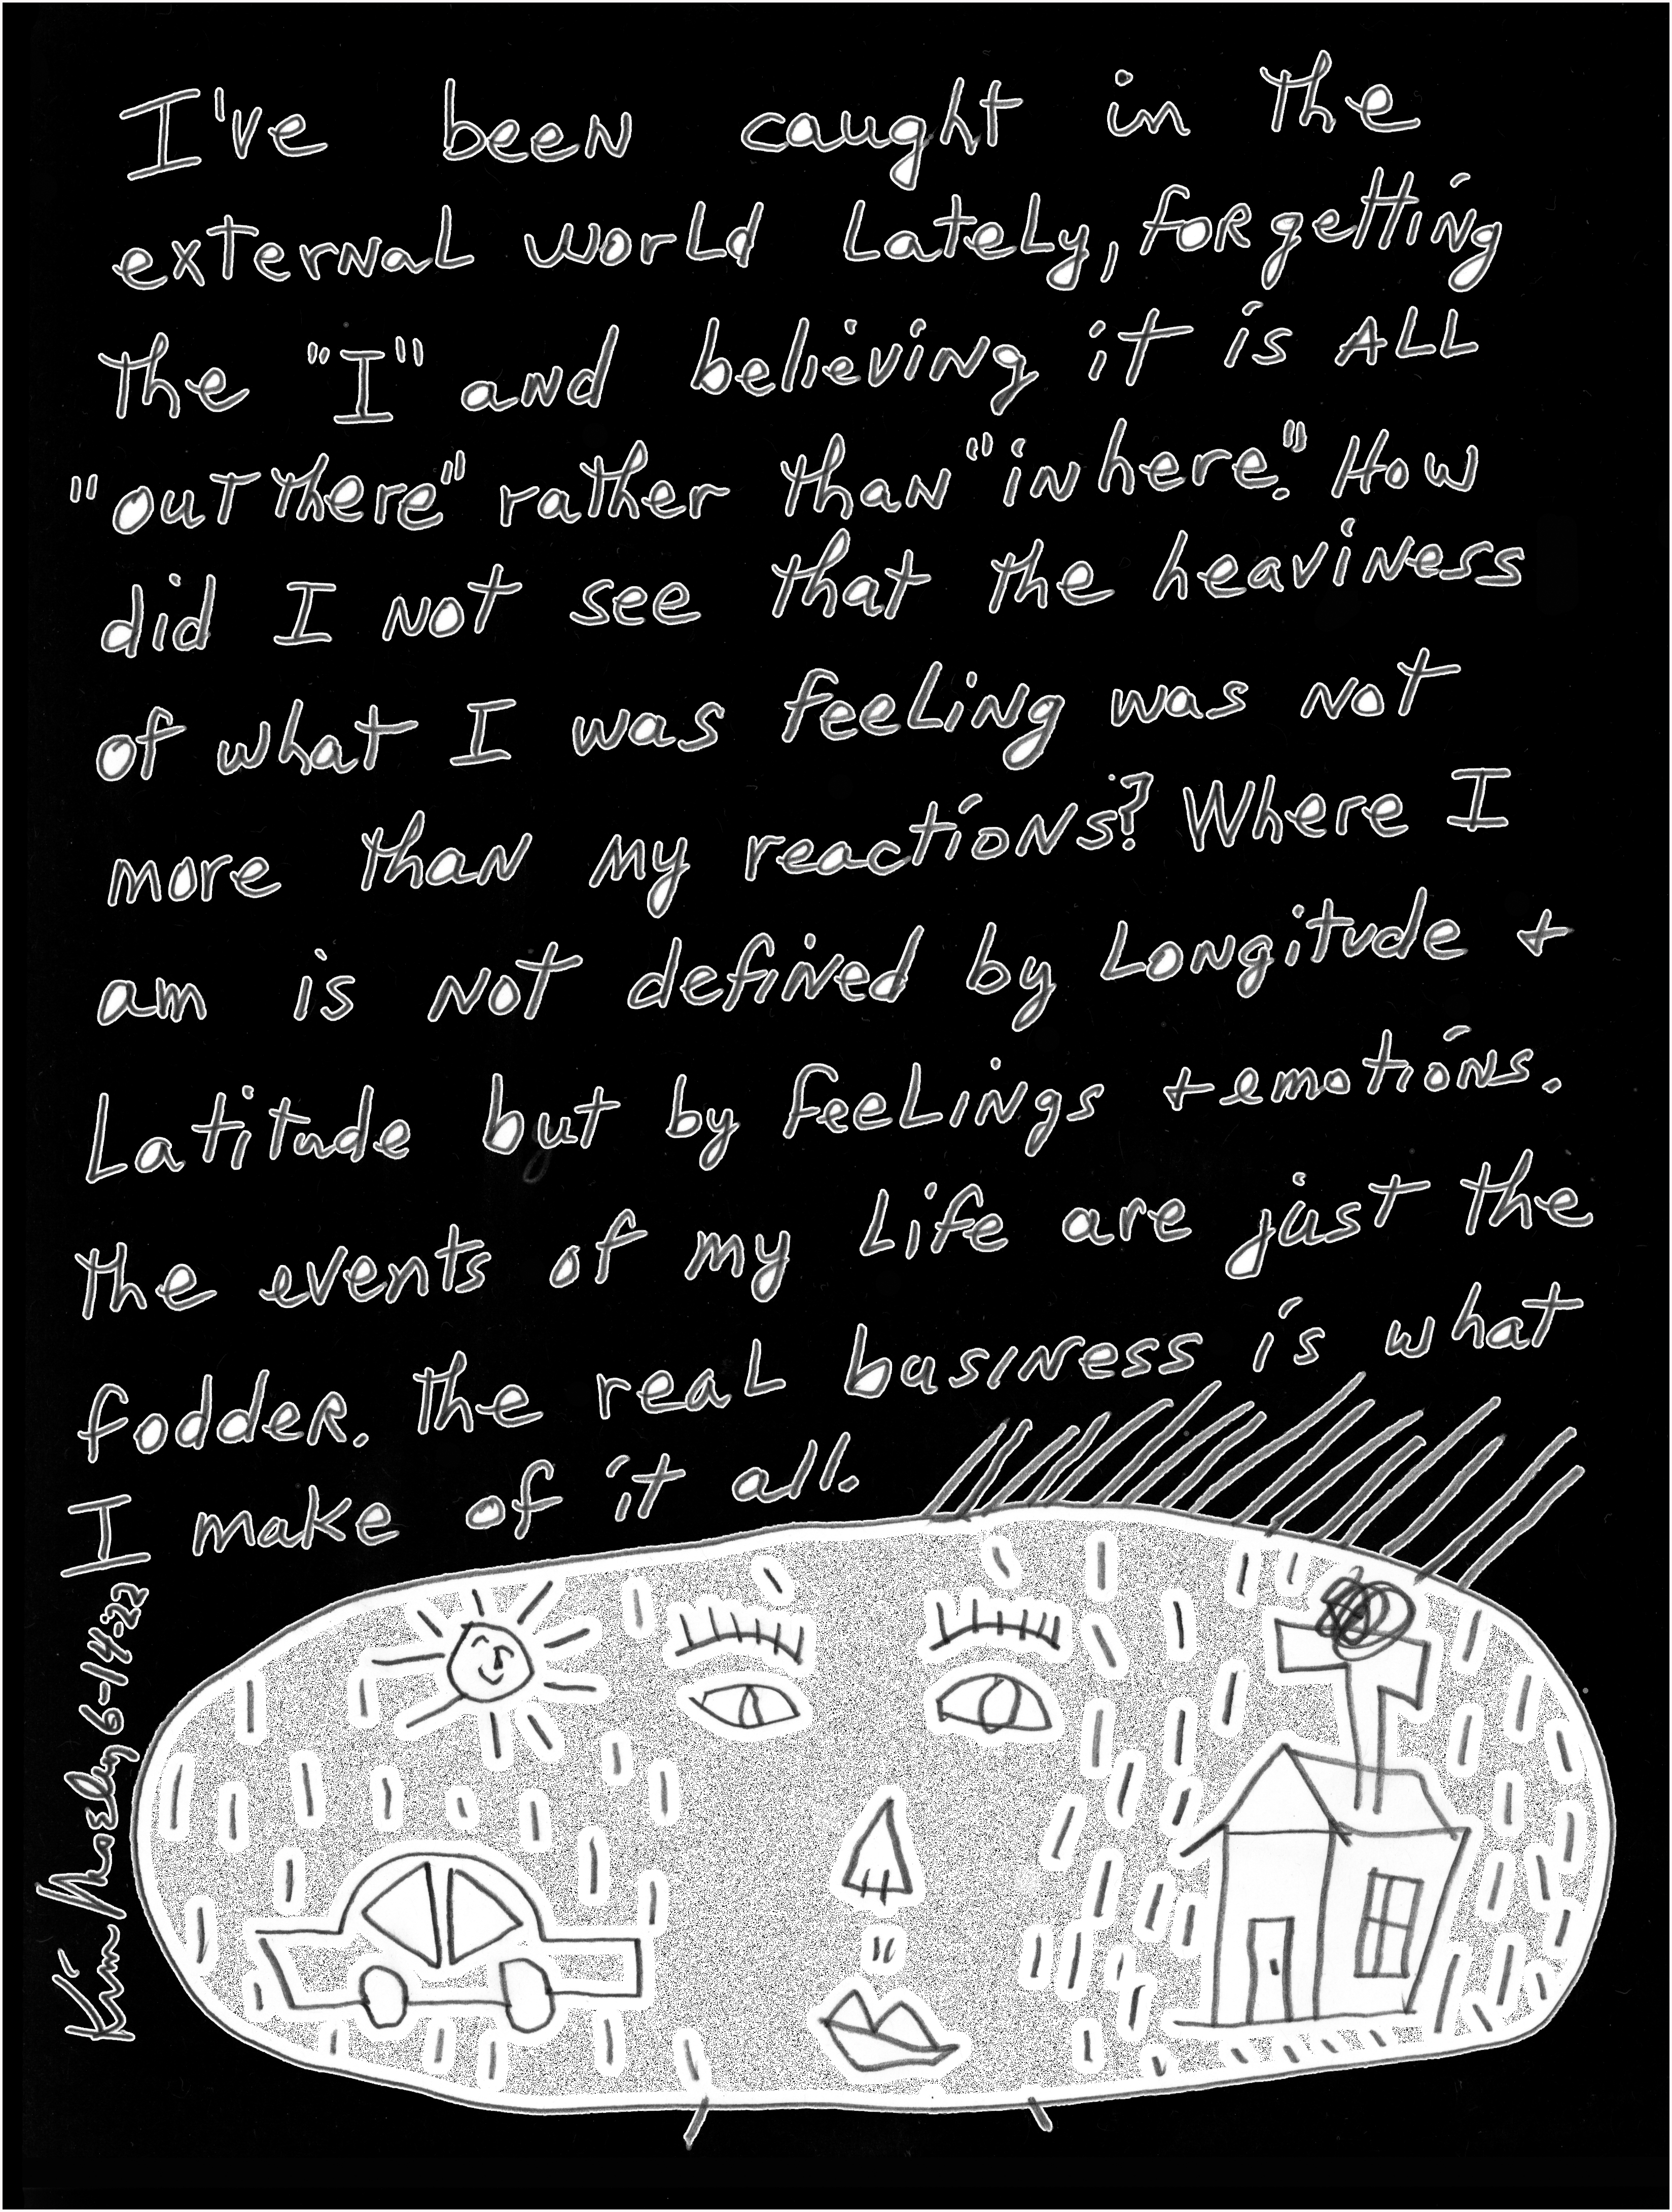 I've been caught in the
external world lately, forgetting
the "I" and believing it is ALL
"out there" rather than "in here." How
did I not see that the heaviness
of what I was feeling was not
more than my reactions? Where I
am is not defined by Longitude +
Latitude but by feelings + emotions.
the events of my life are just the
fodder. the real business is what
I make of it all.
Kim Mosley 6-14-22